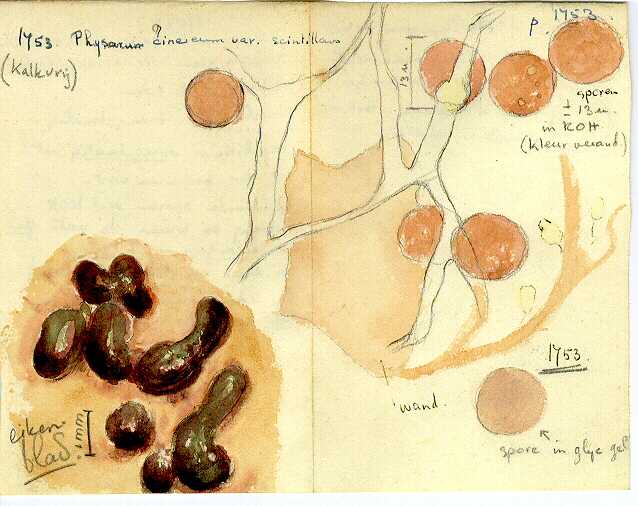 1753. Physarum cinereum var. scintillans
(Kalkvrij)
P. 1753.
13 µ.
sporen
± 13 µ.
in KOH
(kleur verand)
1753.
wand.
spore in glyc gel
eiken
blad.
1 mm